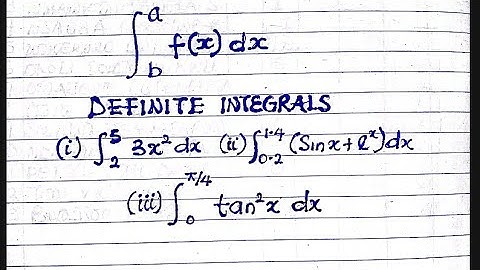 ∫_b^a f(x) dx
DEFINITE INTEGRALS
(i) ∫_2^5 3x² dx (ii) ∫_0.2^1.4 (Sinx + e^x) dx
(iii) ∫_0^π/4 tan²x dx